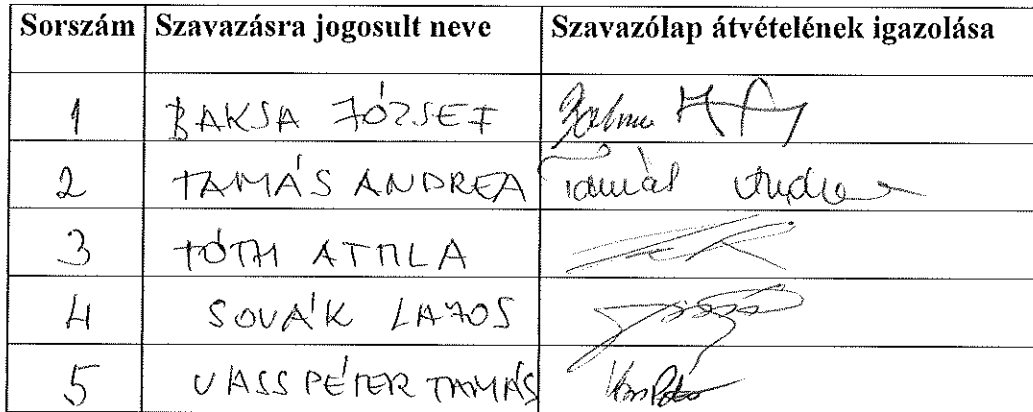 Sorszám Szavazásra jogosult neve Szavazólap átvételének igazolása
1 BAKSA JÓZSEF
2 TAMÁS ANDREA Tamás Andrea
3 TÓTH ATTILA
4 SOVÁK LAJOS
5 VASS PÉTER TAMÁS